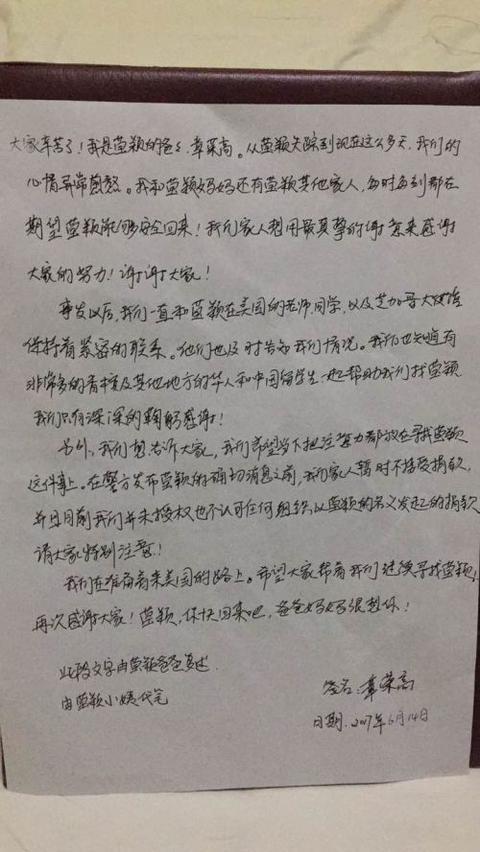 大家辛苦了！我是莹颖的爸爸章荣高。从莹颖失踪到现在这么多天，我们的
心情异常煎熬。我和莹颖妈妈还有莹颖其他家人，每时每刻都在
期望莹颖能够安全回来！我们家人想用最真挚的谢意来感谢
大家的努力！谢谢大家！
事发以后，我们一直和莹颖在美国的老师，同学，以及芝加哥大使馆
保持着紧密的联系。他们也及时告知我们情况。我们也知道有
非常多的香槟及其他地方的华人和中国留学生一起帮助我们找莹颖
我们只有深深的鞠躬感谢！
另外，我们想告诉大家，我们希望当下把注意力都放在寻找莹颖
这件事上。在警方发布莹颖的确切消息之前，我们家人暂时不接受捐款，
并且目前我们并未授权也不认可任何组织以莹颖的名义发起的捐款
请大家特别注意！
我们在准备着来美国的路上。希望大家帮着我们继续寻找莹颖，
再次感谢大家！莹颖，你快回来吧，爸爸妈妈很想你！
此段文字由莹颖爸爸口述.
由莹颖小姨代笔
签名：章荣高
日期．2017年6月14日